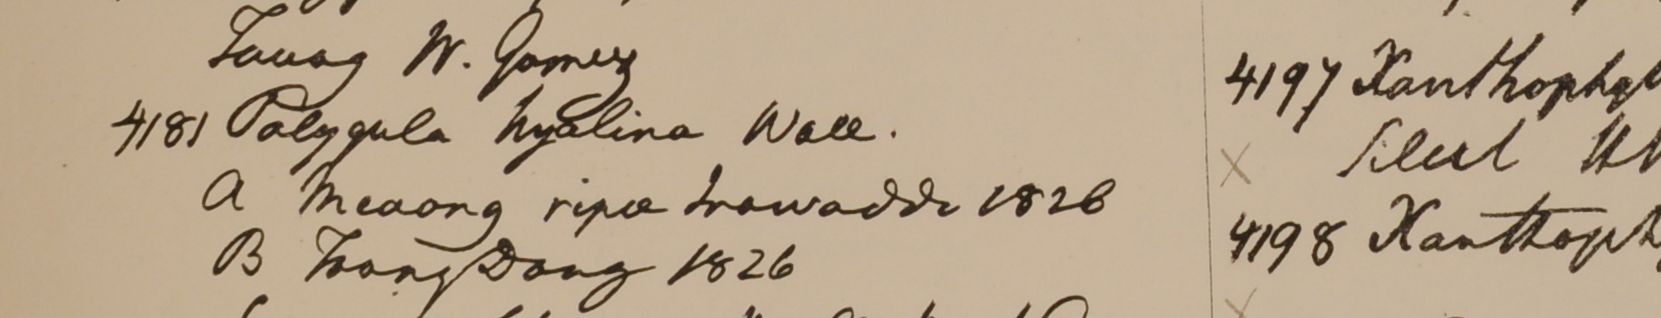 Tavoy W. Gomez
4181 Polygala hyalina Wall.
A Meaong ripae Irawaddi 1826
B Trong Dong 1826
4197 Xanthophy
X
4198 Xanthoph
X